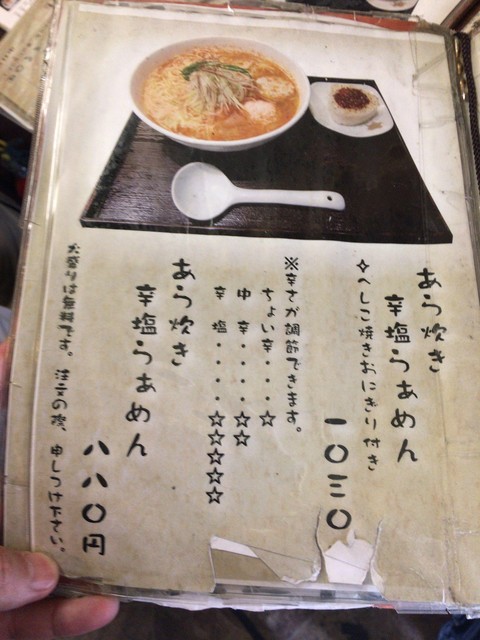 あら炊き
辛塩らぁめん
✧へしこ焼きおにぎり付き
一〇三〇
※辛さが調節できます。
ちょい辛・・・☆
中辛・・・☆☆
辛塩・・・・☆☆☆☆
あら炊き
辛塩らぁめん
八八〇円
大盛りは無料です。注文の際、申しつけ下さい。